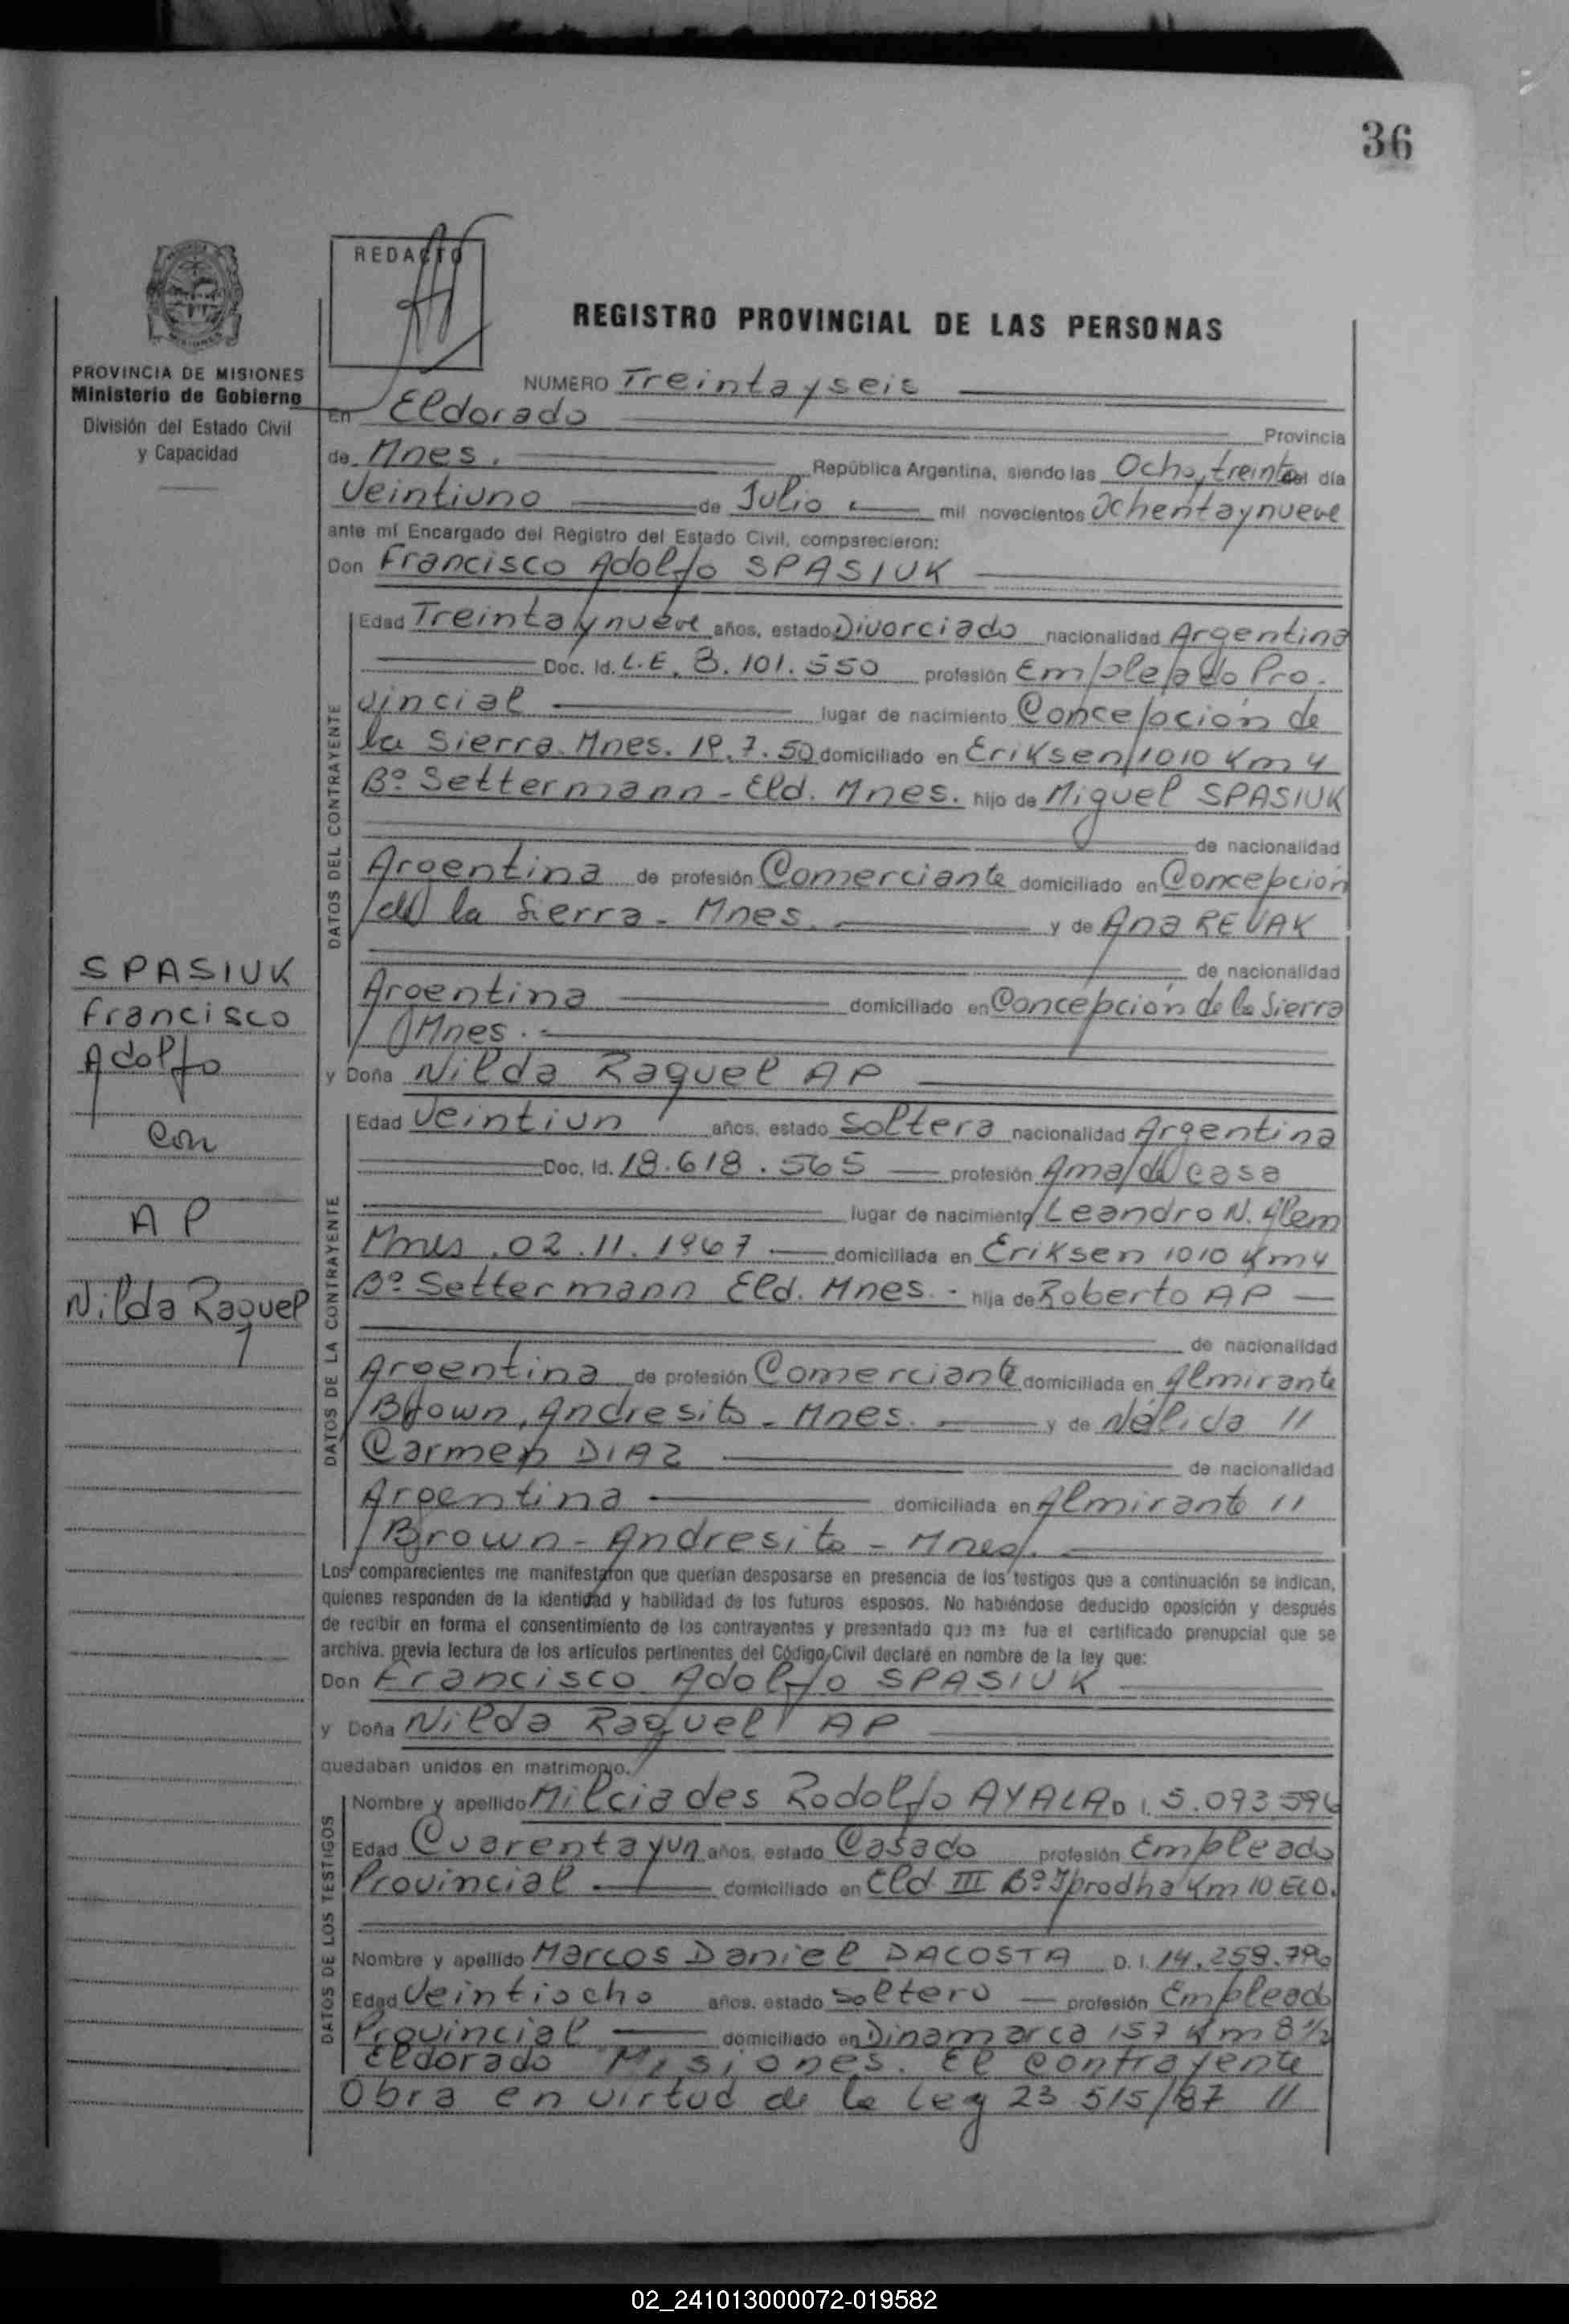 36
REDACTO
REGISTRO PROVINCIAL DE LAS PERSONAS
PROVINCIA DE MISIONES
Ministerio de Gobierno
División del Estado Civil
y Capacidad
NUMERO Treinta y seis
En Eldorado Provincia
de Mnes. República Argentina, siendo las Ocho, treinta del día
Veintiuno de Julio mil novecientos Ochenta y nueve
ante mí Encargado del Registro del Estado Civil, comparecieron:
Don Francisco Adolfo SPASIUK
DATOS DEL CONTRAYENTE
Edad Treinta y nueve años, estado Divorciado nacionalidad Argentina
Doc. Id. L.E. 8.101.550 profesión Empleado Pro-
vincial lugar de nacimiento Concepción de
la Sierra. Mnes. 19.7.50 domiciliado en Eriksen 1010 Km 4
Bº Settermann - Eld. Mnes. hijo de Miguel SPASIUK
de nacionalidad
Argentina de profesión Comerciante domiciliado en Concepción
de la Sierra - Mnes. y de Ana REVAK
de nacionalidad
Argentina domiciliado en Concepción de la Sierra
Mnes.
y Doña Nilda Raquel AP
SPASIUK
Francisco
Adolfo
con
AP
Nilda Raquel
DATOS DE LA CONTRAYENTE
Edad Veintiun años, estado Soltera nacionalidad Argentina
Doc. Id. 18.618.565 profesión Ama de casa
lugar de nacimiento Leandro N. Alem
Mnes. 02.11.1967 domiciliada en Eriksen 1010 Km 4
Bº Settermann Eld. Mnes. - hija de Roberto AP
de nacionalidad
Argentina de profesión Comerciante domiciliada en Almirante
Brown, Andresito - Mnes. y de Nélida //
Carmen DIAZ de nacionalidad
Argentina domiciliada en Almirante //
Brown - Andresito - Mnes.
Los comparecientes me manifestaron que querían desposarse en presencia de los testigos que a continuación se indican,
quienes responden de la identidad y habilidad de los futuros esposos. No habiéndose deducido oposición y después
de recibir en forma el consentimiento de los contrayentes y presentado que me fue el certificado prenupcial que se
archiva, previa lectura de los artículos pertinentes del Código Civil declaré en nombre de la ley que:
Don Francisco Adolfo SPASIUK
y Doña Nilda Raquel AP
quedaban unidos en matrimonio.
DATOS DE LOS TESTIGOS
Nombre y apellido Milciades Rodolfo AYALA D.I. 5.093.596
Edad Cuarenta y un años, estado Casado profesión Empleado
Provincial domiciliado en Eld III Bº Iprodha Km 10 ELD.
Nombre y apellido Marcos Daniel DACOSTA D.I. 14.259.796
Edad Veintiocho años, estado Soltero profesión Empleado
Provincial domiciliado en Dinamarca 157 Km 8 ½
Eldorado Misiones. El contrayente
Obra en virtud de la Ley 23 515/87 //
02_241013000072-019582